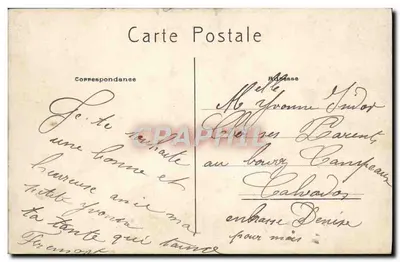 Carte Postale
Correspondance
Adresse
Je te souhaite
une bonne et
heureuse année ma
ta tante qui t'aime
Fremont
Melle Yvonne
Chez ses Parents
au bourg Campeaux
Calvados
embrasse Denise
pour moi
CARTPOSTAL